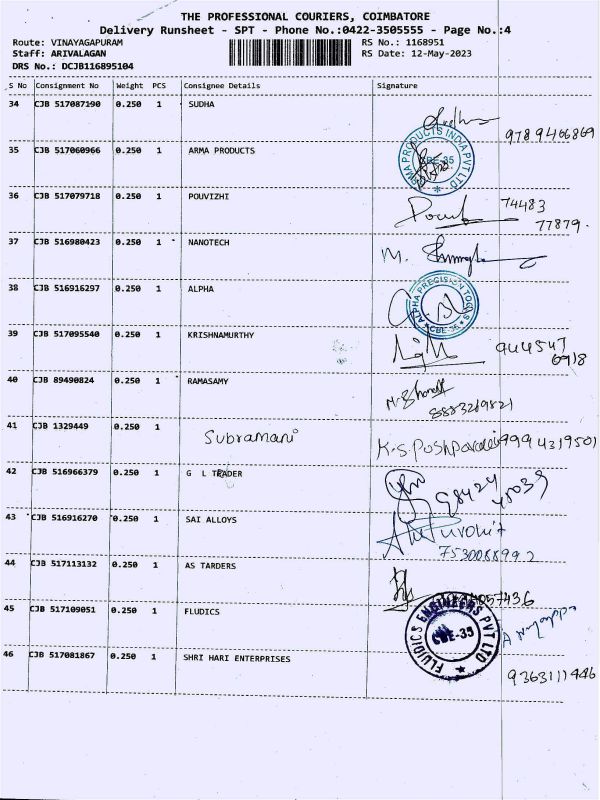 THE PROFESSIONAL COURIERS, COIMBATORE
Delivery Runsheet - SPT - Phone No.:0422-3505555 - Page No.:4
Route: VINAYAGAPURAM RS No.: 1168951
Staff: ARIVALAGAN RS Date: 12-May-2023
DRS No.: DCJB116895104
S No Consignment No Weight PCS Consignee Details Signature
34 CJB 517087190 0.250 1 SUDHA
9789466869
35 CJB 517060966 0.250 1 ARMA PRODUCTS
ARMA PRODUCTS INDIA PVT LTD CBE-35
36 CJB 517079718 0.250 1 POUVIZHI
74483
77879.
37 CJB 516980423 0.250 1 NANOTECH
M.
38 CJB 516916297 0.250 1 ALPHA
ALPHA PRECISION TOOLS CBE-35
39 CJB 517095540 0.250 1 KRISHNAMURTHY
944547
6918
40 CJB 89490824 0.250 1 RAMASAMY
8883219821
41 CJB 1329449 0.250 1 Subramani
K.S. 9994319501
42 CJB 516966379 0.250 1 G L TRADER
98424
43 CJB 516916270 0.250 1 SAI ALLOYS
Purohit
7530088992
44 CJB 517113132 0.250 1 AS TARDERS
057436
45 CJB 517109051 0.250 1 FLUDICS
FLUIDICS ENGINEERS PVT LTD CBE-35
46 CJB 517081867 0.250 1 SHRI HARI ENTERPRISES
9363111446